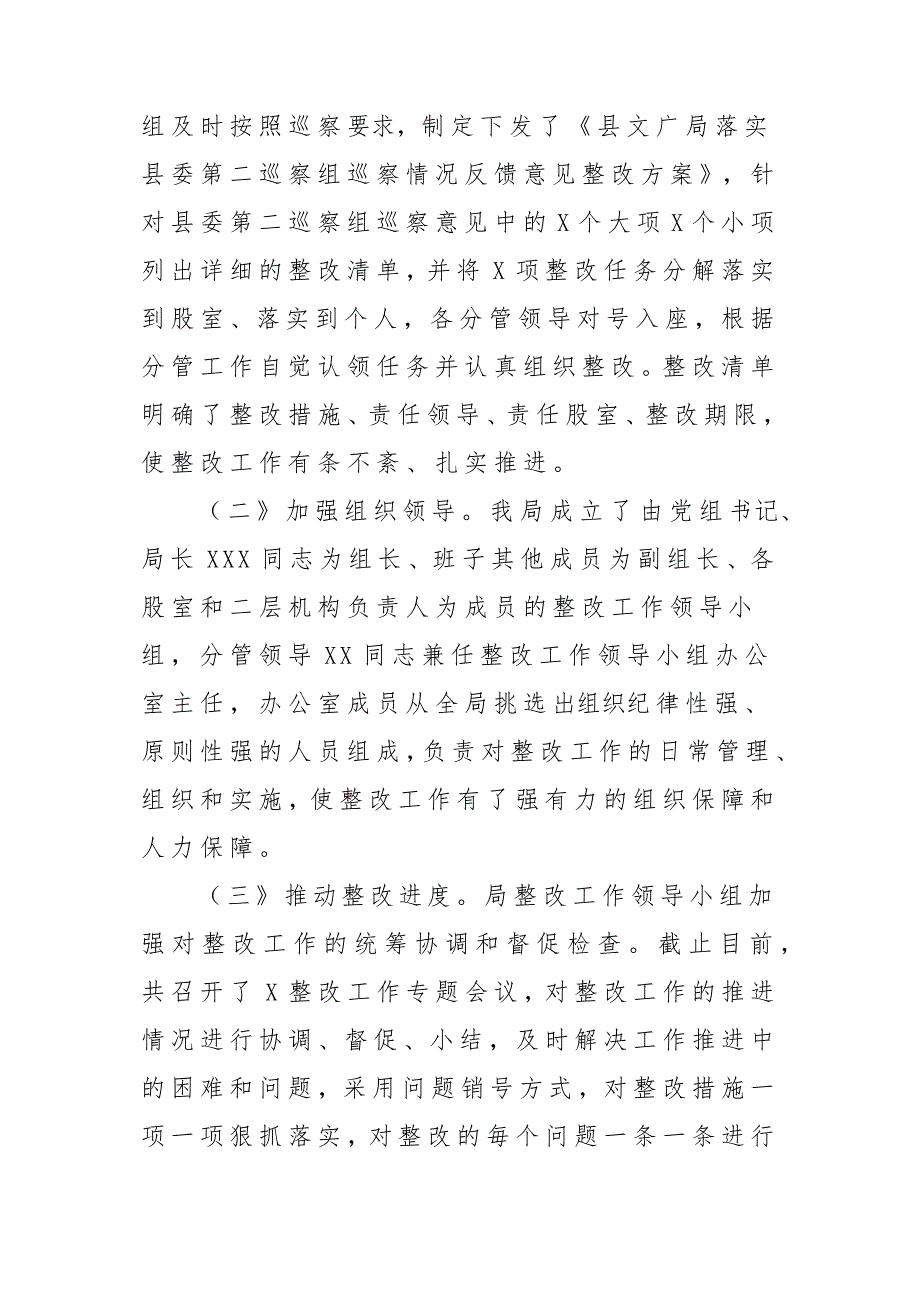 组及时按照巡察要求，制定下发了《县文广局落实
县委第二巡察组巡察情况反馈意见整改方案》，针
对县委第二巡察组巡察意见中的X个大项X个小项
列出详细的整改清单，并将X项整改任务分解落实
到股室、落实到个人，各分管领导对号入座，根据
分管工作自觉认领任务并认真组织整改。整改清单
明确了整改措施、责任领导、责任股室、整改期限，
使整改工作有条不紊、扎实推进。
（二》加强组织领导。我局成立了由党组书记、
局长XXX同志为组长、班子其他成员为副组长、各
股室和二层机构负责人为成员的整改工作领导小
组，分管领导XX同志兼任整改工作领导小组办公
室主任，办公室成员从全局挑选出组织纪律性强、
原则性强的人员组成，负责对整改工作的日常管理、
组织和实施，使整改工作有了强有力的组织保障和
人力保障。
（三》推动整改进度。局整改工作领导小组加
强对整改工作的统筹协调和督促检查。截止目前，
共召开了X整改工作专题会议，对整改工作的推进
情况进行协调、督促、小结，及时解决工作推进中
的困难和问题，采用问题销号方式，对整改措施一
项一项狠抓落实，对整改的每个问题一条一条进行